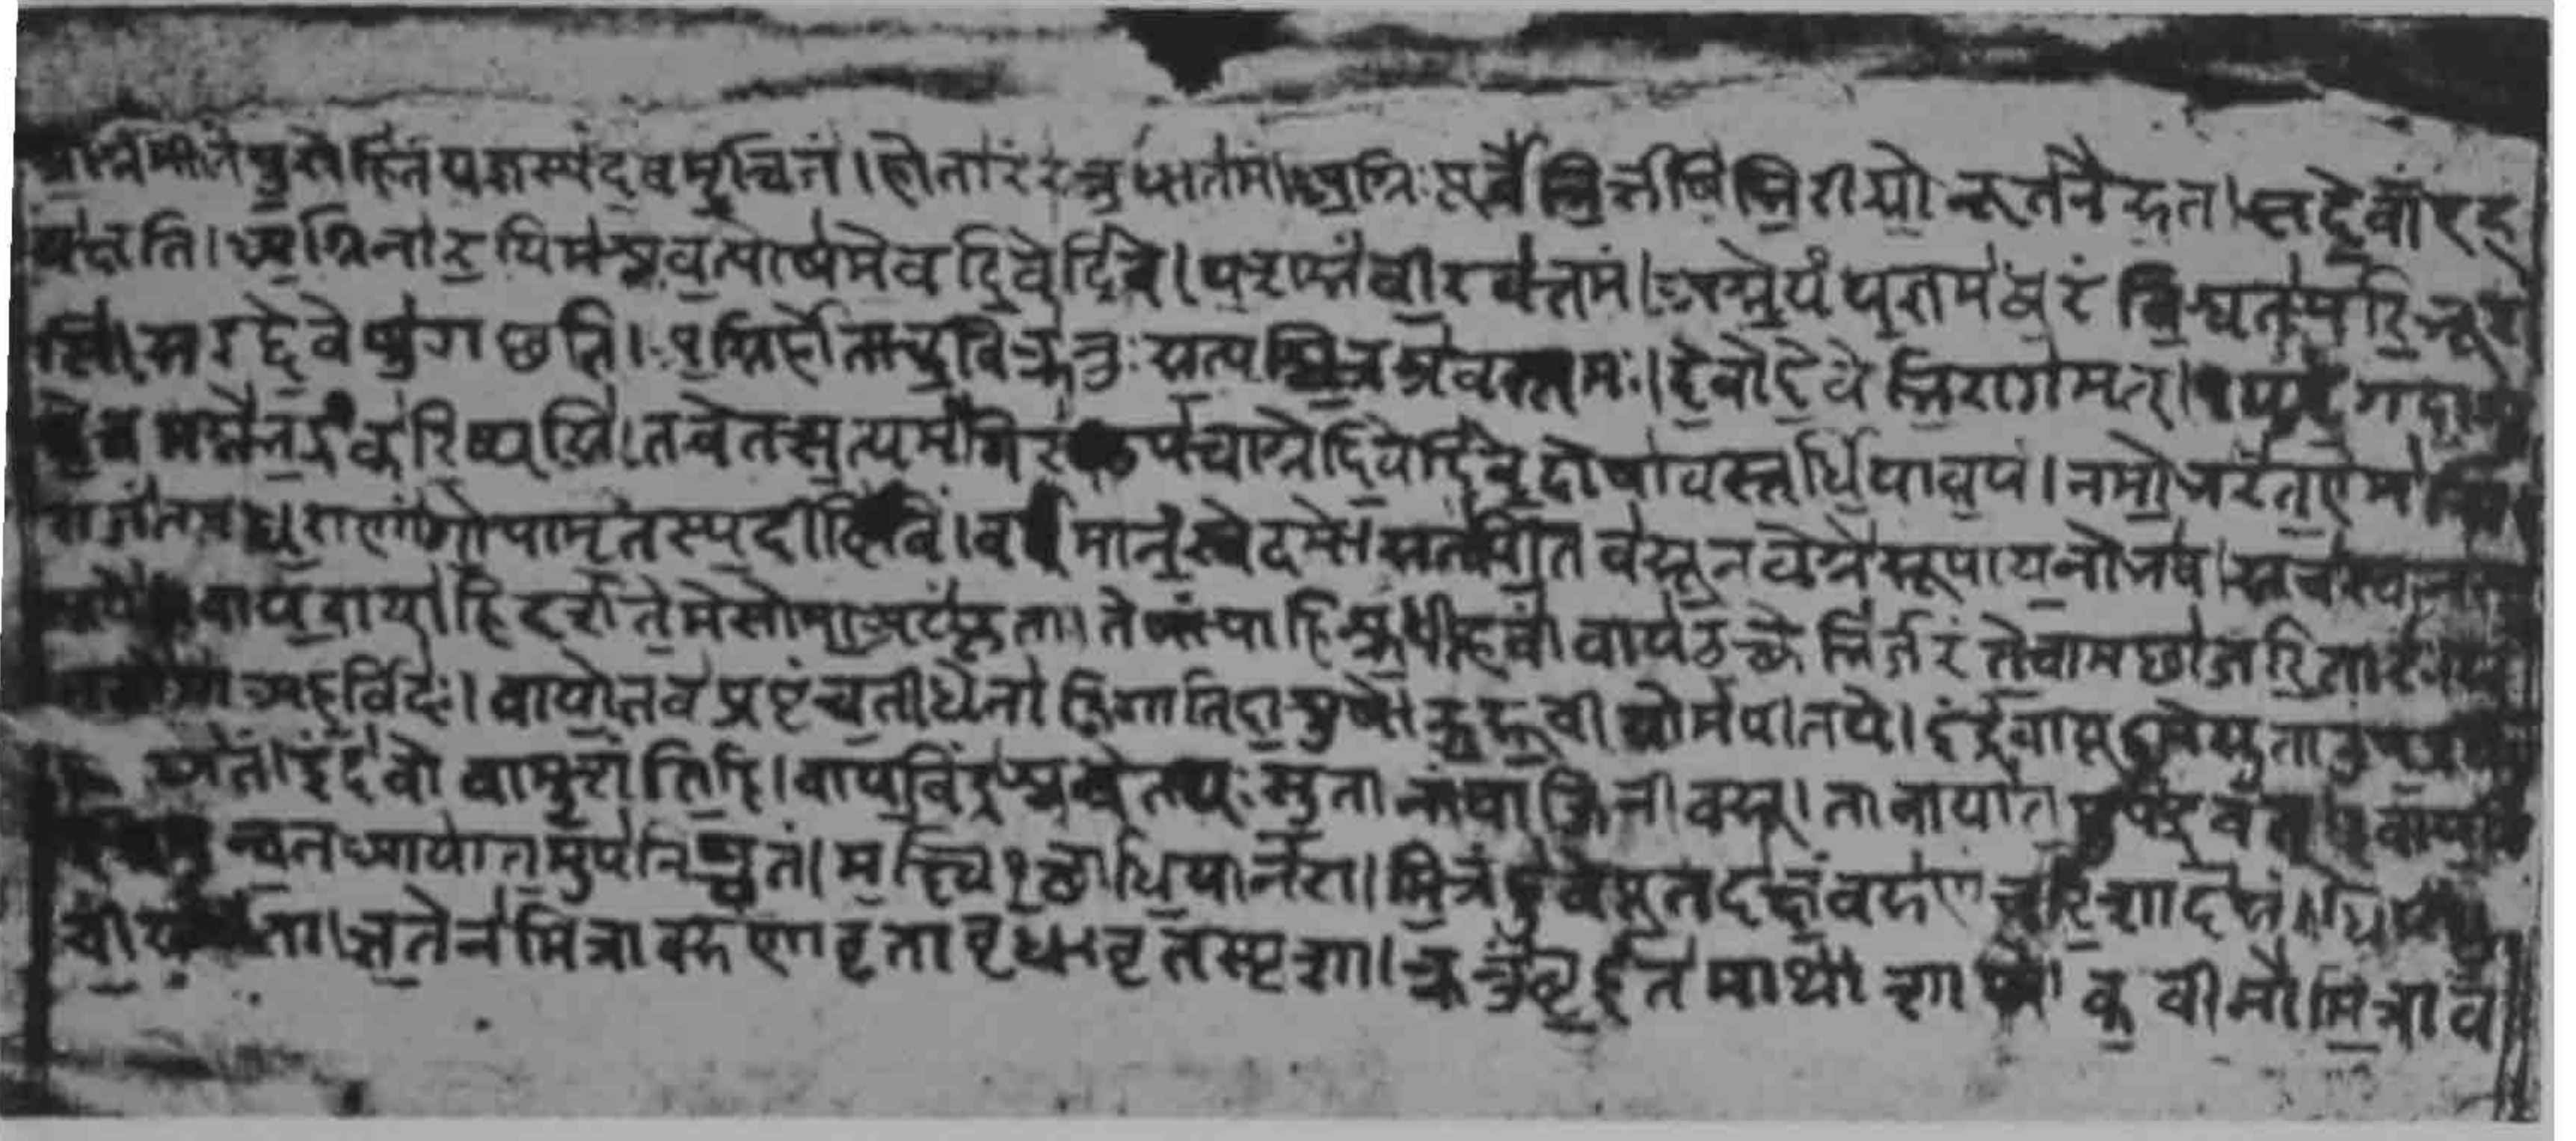 अ॒ग्निमी॑ळे पु॒रोहि॑तं य॒ज्ञस्य॑ दे॒वमृ॒त्विजं॑ । होता॑रं रत्न॒धात॑मं । अ॒ग्निः पूर्वे॑भि॒र्ऋषि॑भि॒रीड्यो॒ नूत॑नैरु॒त । स दे॒वाँ एह
व॑क्षति । अ॒ग्निना॑ र॒यिम॑श्नव॒त्पोष॑मे॒व दि॒वेदि॑वे । य॒शसं॑ वी॒रव॑त्तमं । अग्ने॒ यं य॒ज्ञम॑ध्व॒रं वि॒श्वतः॑ परि॒भूर
सि॑ । स इद्दे॒वेषु॑ गच्छति । अ॒ग्निर्होता॑ क॒विक्र॑तुः स॒त्यश्चि॒त्रश्र॑वस्तमः । दे॒वो दे॒वेभि॒रा ग॑मत् । यद॒ङ्ग दा॒शु
षे॒ त्वमग्ने॑ भ॒द्रं क॑रि॒ष्यसि॑ । तवेत्तत्स॒त्यमं॑गिरः । उप॑ त्वाग्ने दि॒वेदि॑वे॒ दोषा॑वस्तर्धि॒या व॒यं । नमो॒ भरं॑त॒ एम॑सि
राजं॑तमध्व॒राणां॑ गो॒पामृ॒तस्य॒ दीदि॑विं । वर्ध॑मानं॒ स्वे दमे॑ । स नः॑ पि॒तेव॑ सू॒नवेऽग्ने॑ सूपाय॒नो भ॑व । सच॑स्वा नः
वाय॒वा या॑हि दर्शते॒मे सोमा॒ अरं॑कृताः । तेषां॑ पाहि श्रु॒धी हवं॑ । वाय॑ उ॒क्थेभि॑र्जरंते॒ त्वामच्छा॑ जरि॒तारः॑
अह॒र्विदः॑ । वायो॒ तव॑ प्रपृंच॒ती धेना॑ जिगाति दा॒शुषे॑ । उ॒रू॒ची सोम॑पीतये । इंद्र॑वायू इ॒मे सु॒ता उप॒
ग॑तं । इंद॑वो वामु॒शंति॒ हि । वाय॒विंद्र॑श्च चेतथः सु॒तानां॑ वाजिनीवसू । तावा या॑त॒मुप॑ द्र॒वत् । वाय॒विं
न्व॒त आ या॑त॒मुप॑ निष्कृ॒तं । म॒क्ष्वि१॒त्था धि॒या न॑रा । मि॒त्रं हु॑वे पू॒तद॑क्षं॒ वरु॑णं च रि॒शाद॑सं । धियं॑
घृ॒ताचीं॒ साधं॑ता । ऋ॒तेन॑ मित्रावरुणावृतावृधावृतस्पृशा । क्रतुं॑ बृ॒हंत॑माशाथे । क॒वी नो॑ मि॒त्राव